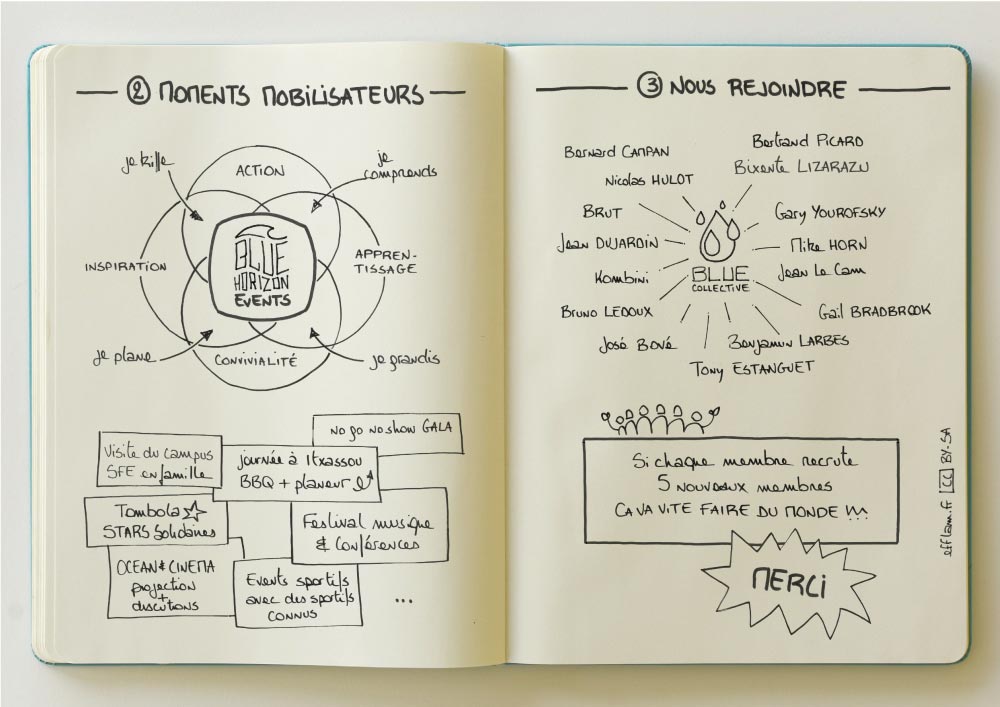 ② MOMENTS MOBILISATEURS
je kiffe
ACTION
je
comprends
INSPIRATION
BLUE
HORIZON
EVENTS
APPREN-
TISSAGE
je plane
CONVIVIALITÉ
je grandis
no go no show GALA
Visite du campus
SFE en famille
journée à Itxassou
BBQ + planeur
Tombola
STARS Solidaires
Festival musique
& Conférences
OCEAN & CINEMA
projection
+
discutions
Events sportifs
avec des sportifs
CONNUS
...
③ NOUS REJOINDRE
Bernard CAMPAN
Bertrand PICARD
Nicolas HULOT
Bixente LIZARAZU
BRUT
Gary YOUROFSKY
Jean DUJARDIN
Mike HORN
Kombini
BLUE
COLLECTIVE
Jean Le Cam
Bruno LEDOUX
Gail BRADBROOK
José Bové
Benjamin LARBES
Tony ESTANGUET
Si chaque membre recrute
5 nouveaux membres
CA VA VITE FAIRE DU MONDE !!!
MERCI
efflam.fr CC BY-SA